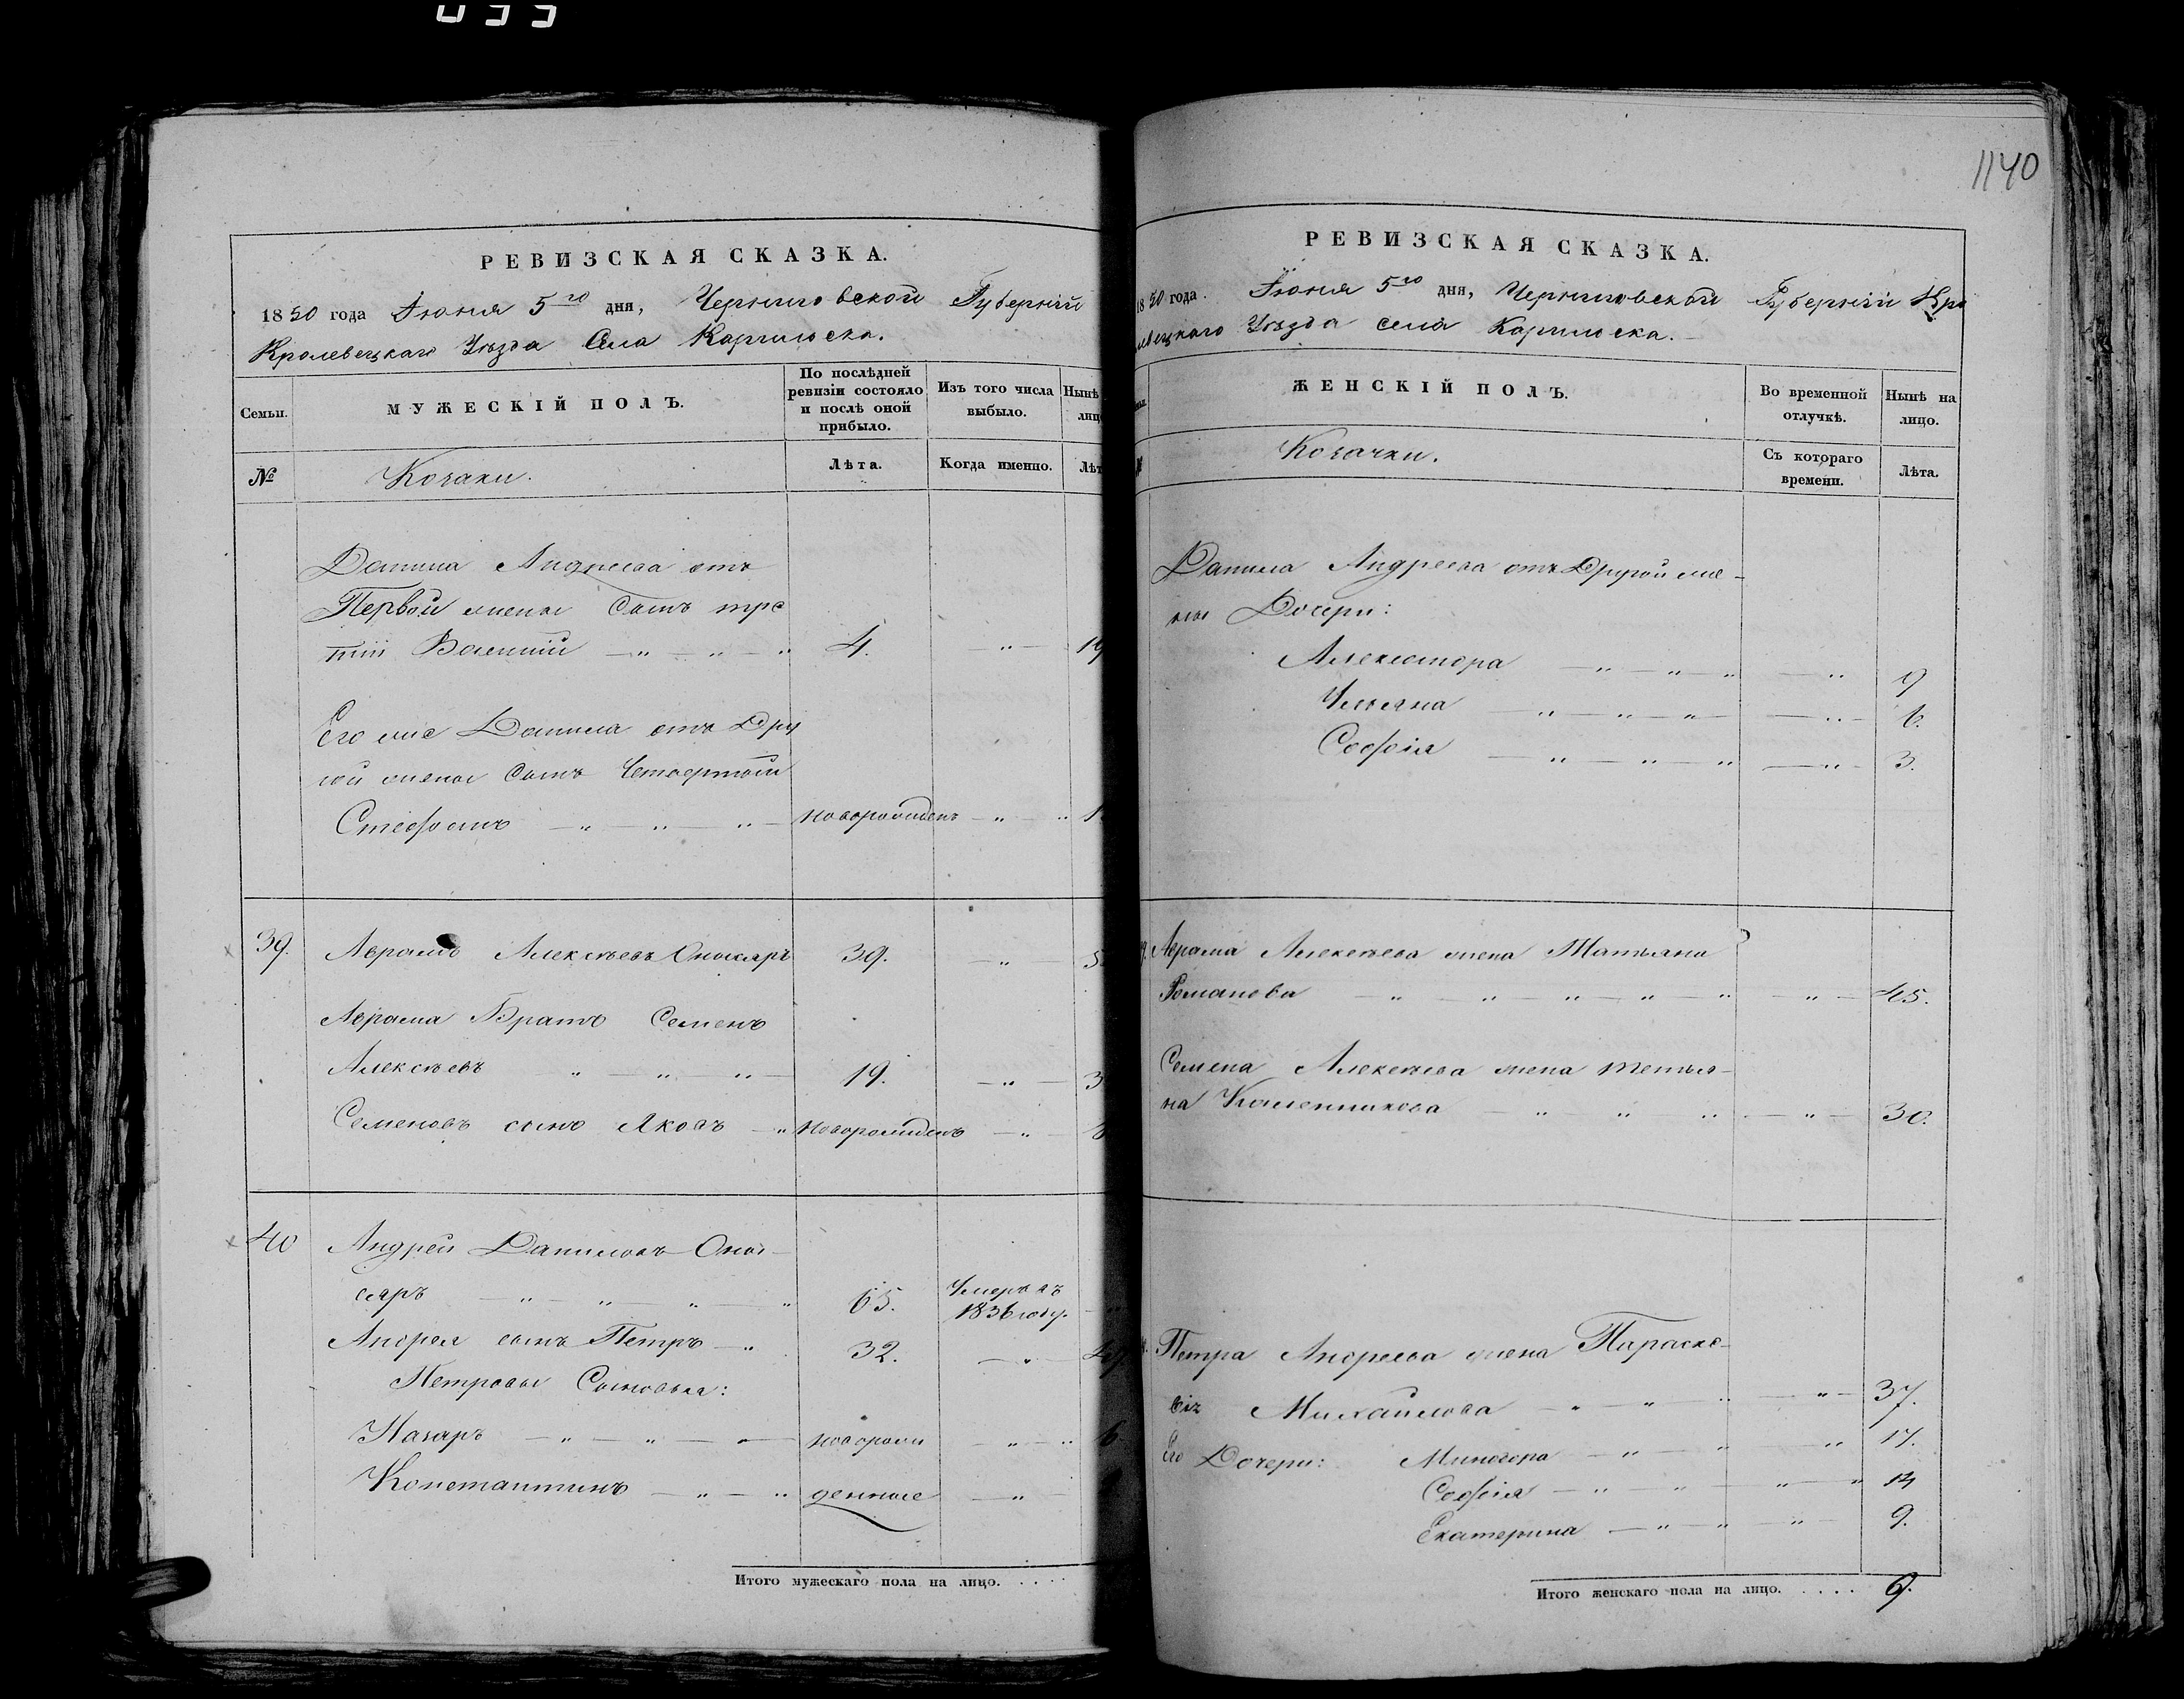 1140
РЕВИЗСКАЯ СКАЗКА.
1850 года Іюня 5го дня, Черниговской Губерніи
Кролевецкаго Уѣзда Села
Семьи.
МУЖЕСКІЙ ПОЛЪ.
По послѣдней ревизіи состояло и послѣ оной прибыло.
Изъ того числа выбыло.
Нынѣ
№
Козаки.
Лѣта.
Когда именно.
Данила Андреева отъ
Первой жены Сынъ тре
тій 4.
Его же Данила отъ Дру
гой жены Сынъ Четвертый
Стефанъ новорожденъ
39. Аврамъ Алексѣевъ 39.
Аврама Братъ Семенъ
Алексѣевъ 19.
Семеновъ сынъ Яковъ новорожденъ
40 Андрей Даниловъ
65. Умеръ въ 1836 году.
Андрея сынъ Петръ 32.
Петровы Сыновья:
Назаръ новорож
Константинъ денные
Итого мужескаго пола на лицо. . . . .
РЕВИЗСКАЯ СКАЗКА.
1850 года. Іюня 5го дня, Черниговской Губерніи Кро
левецкаго Уѣзда села
ЖЕНСКІЙ ПОЛЪ.
Во временной отлучкѣ.
Нынѣ на лицо.
Козачки.
Съ котораго времени.
Лѣта.
Данила Андреева отъ Другой же-
ны Дочери:
Александра 9
Ульяна 6.
Софія 3.
Аврама Алексѣева жена Татьяна
Романова 45.
Семена Алексѣева жена Татья-
на 30.
Петра Андреева жена Параске-
вія Михайлова 37.
Его Дочери: Минодора 17.
Софія 14
Екатерина 9.
Итого женскаго пола на лицо. . . . . 9.